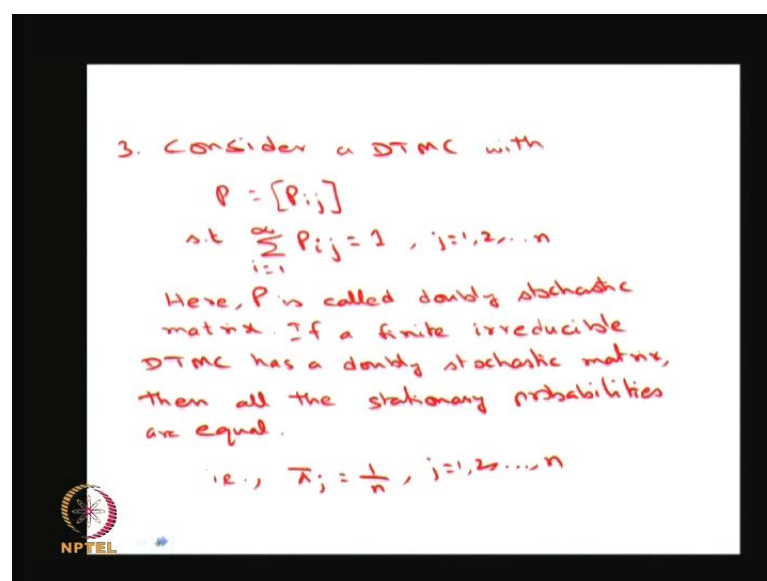 3. Consider a DTMC with
P = [Pij]
s.t ∞∑i=1 Pij = 1 , j=1,2,...n
Here, P is called doubly stochastic
matrix. If a finite irreducible
DTMC has a doubly stochastic matrix,
then all the stationary probabilities
are equal.
i.e., πj = 1/n , j=1,2,...,n
NPTEL